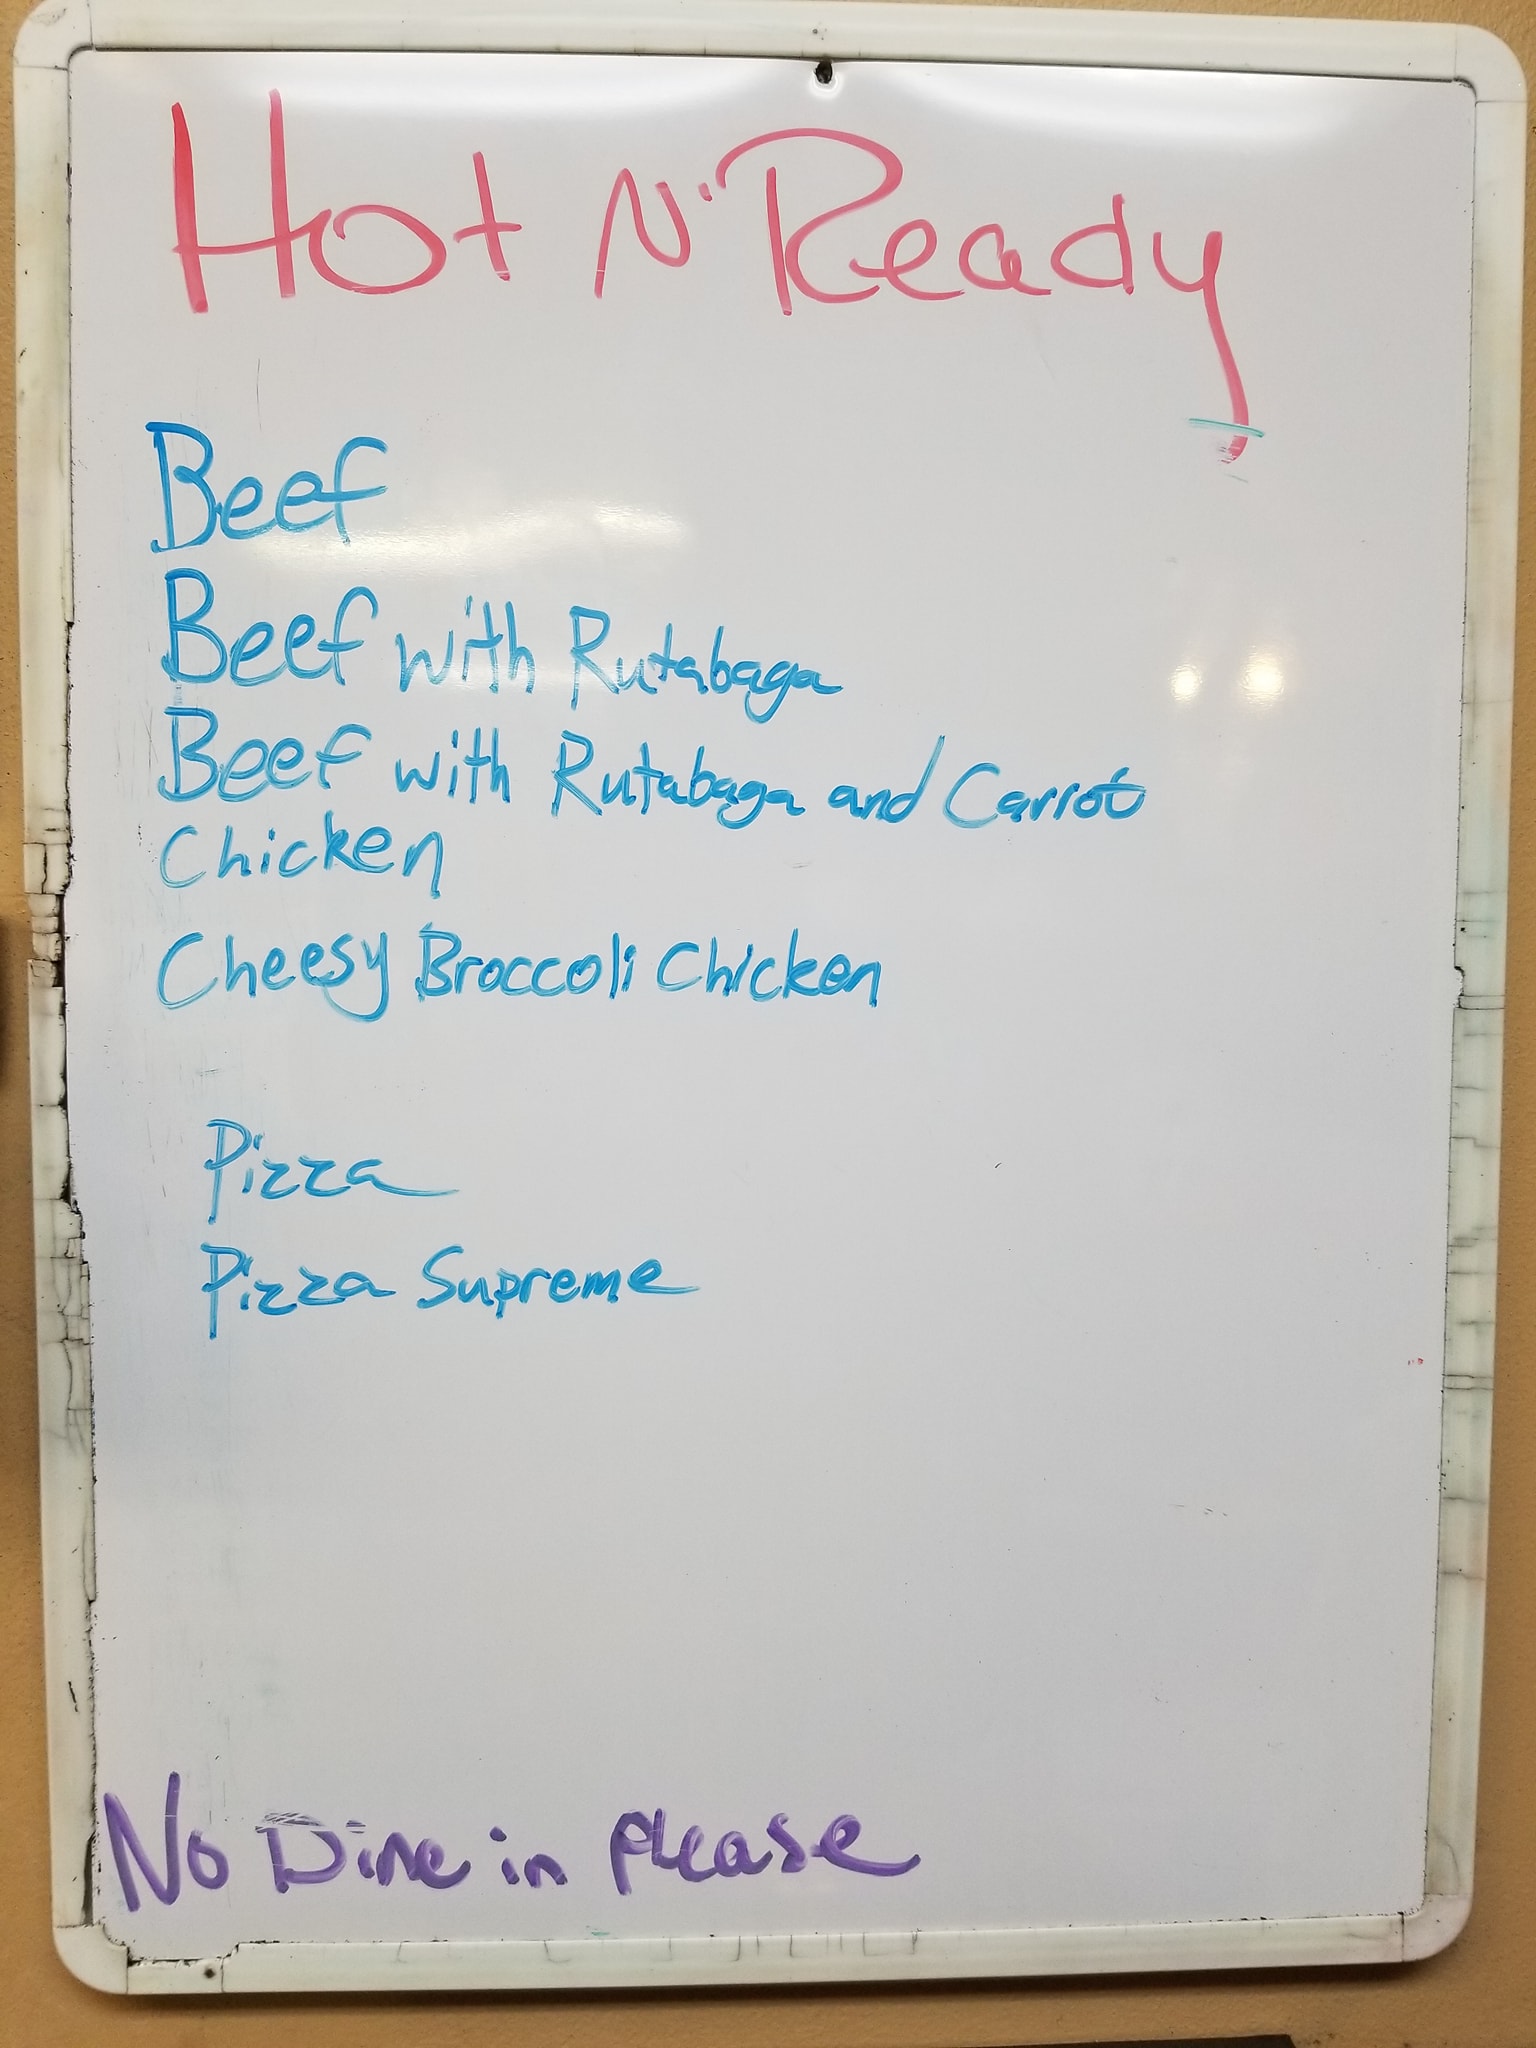 Hot N' Ready
Beef
Beef with Rutabaga
Beef with Rutabaga and Carrot
Chicken
Cheesy Broccoli Chicken
Pizza
Pizza Supreme
No Dine in please